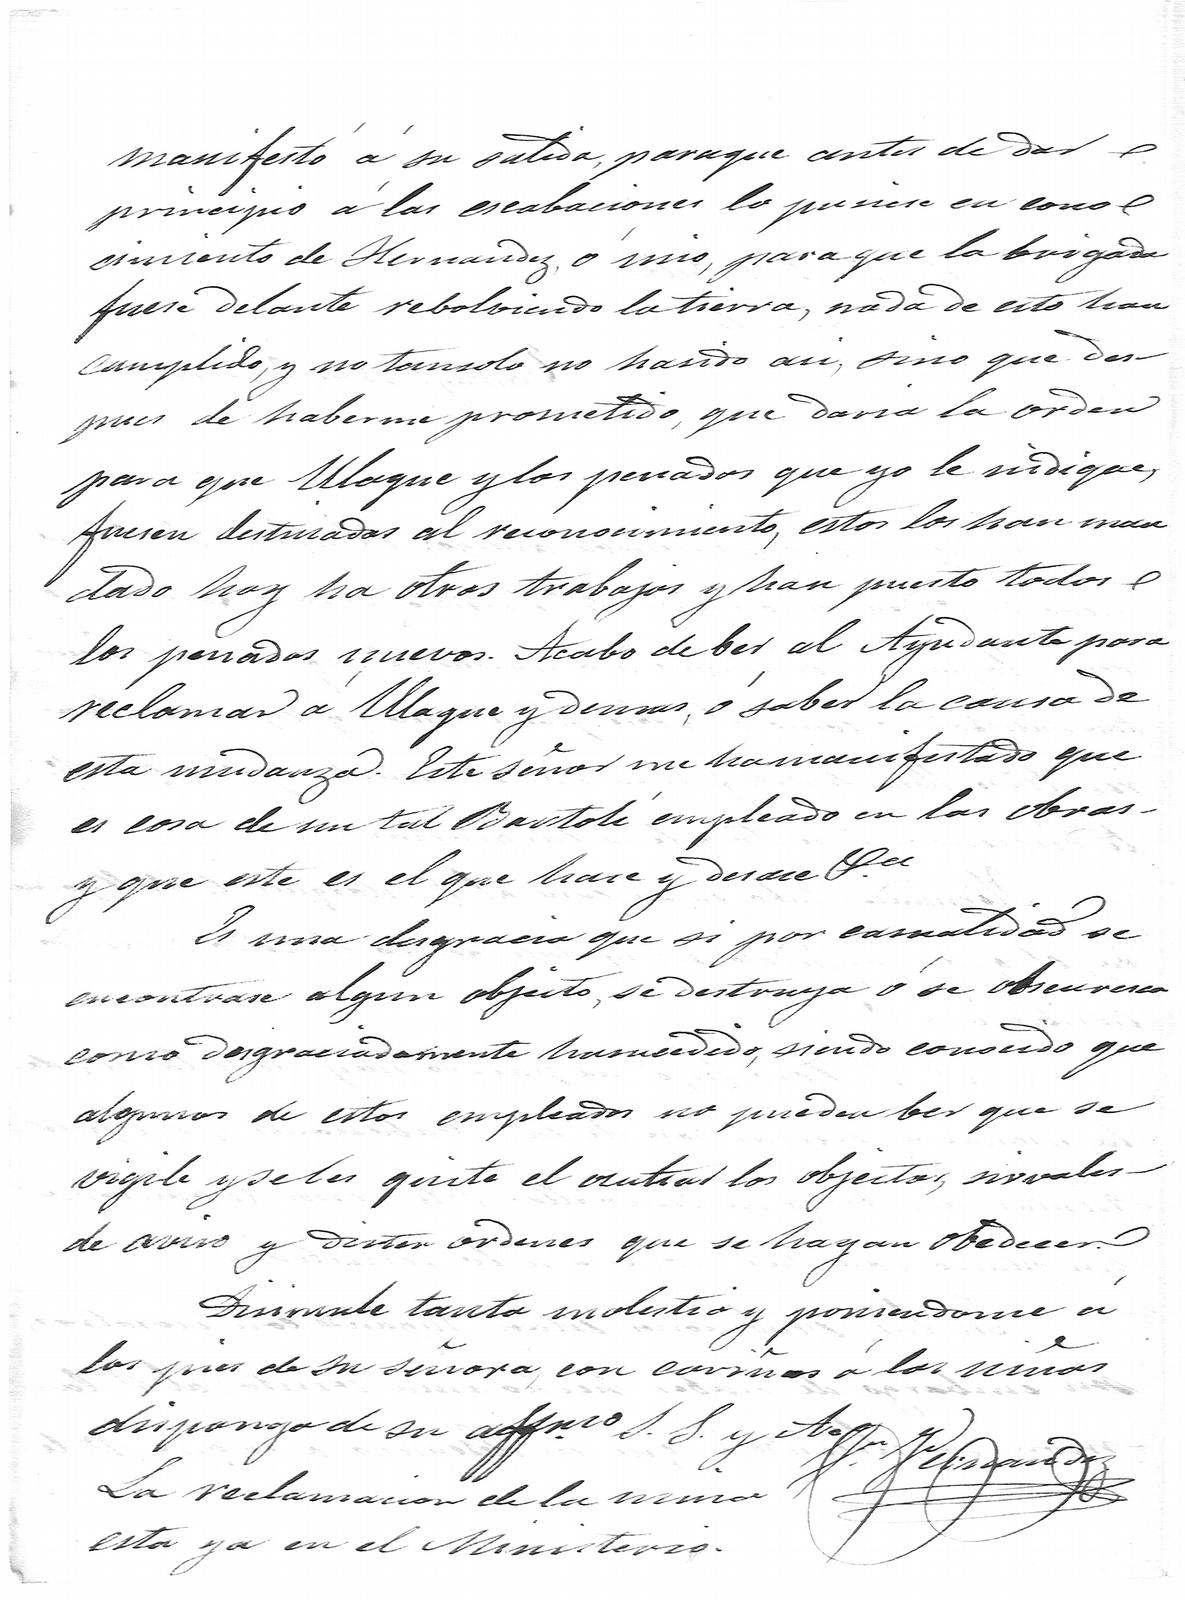 manifestó á su salida, paraque antes de dar
principio á las escabaciones lo pusiese en cono
cimiento de Hernandez, ó mio, para que la brigada
fuese delante rebolviendo la tierra, nada de esto han
cumplido, y no tansolo no hasido asi, sino que des-
pues de haberme prometido, que daria la orden
para que Ulaque y los penados que yo le indique,
fuesen destinados al reconocimiento, estos los han man
dado hoy ha otros trabajos y han puesto todos
los penados nuevos. Acabo de ber al Ayudante para
reclamar á Ulaque y demas, ó saber la causa de
esta mudanza. Este señor me hamanifestado que
es cosa de un tal Bartolé empleado en las obras-
y que este es el que hace y desace &.a
Es una desgracia que si por casualidad se
encontrase algun objeto, se destruya ó se obscuresca
como desgraciadamente hasucedido, siendo conocido que
algunos de estos empleados no pueden ber que se
vigile y se les quite el ocultar los objectos, sirvales-
de aviso y dicten ordenes que se hagan obedecer.
Disimule tanta molestia y poniendome á
los pies de su señora, con cariños á los niños
disponga de su affmo S. S. y
Hernandez
La reclamacion de la mina
esta ya en el Ministerio.